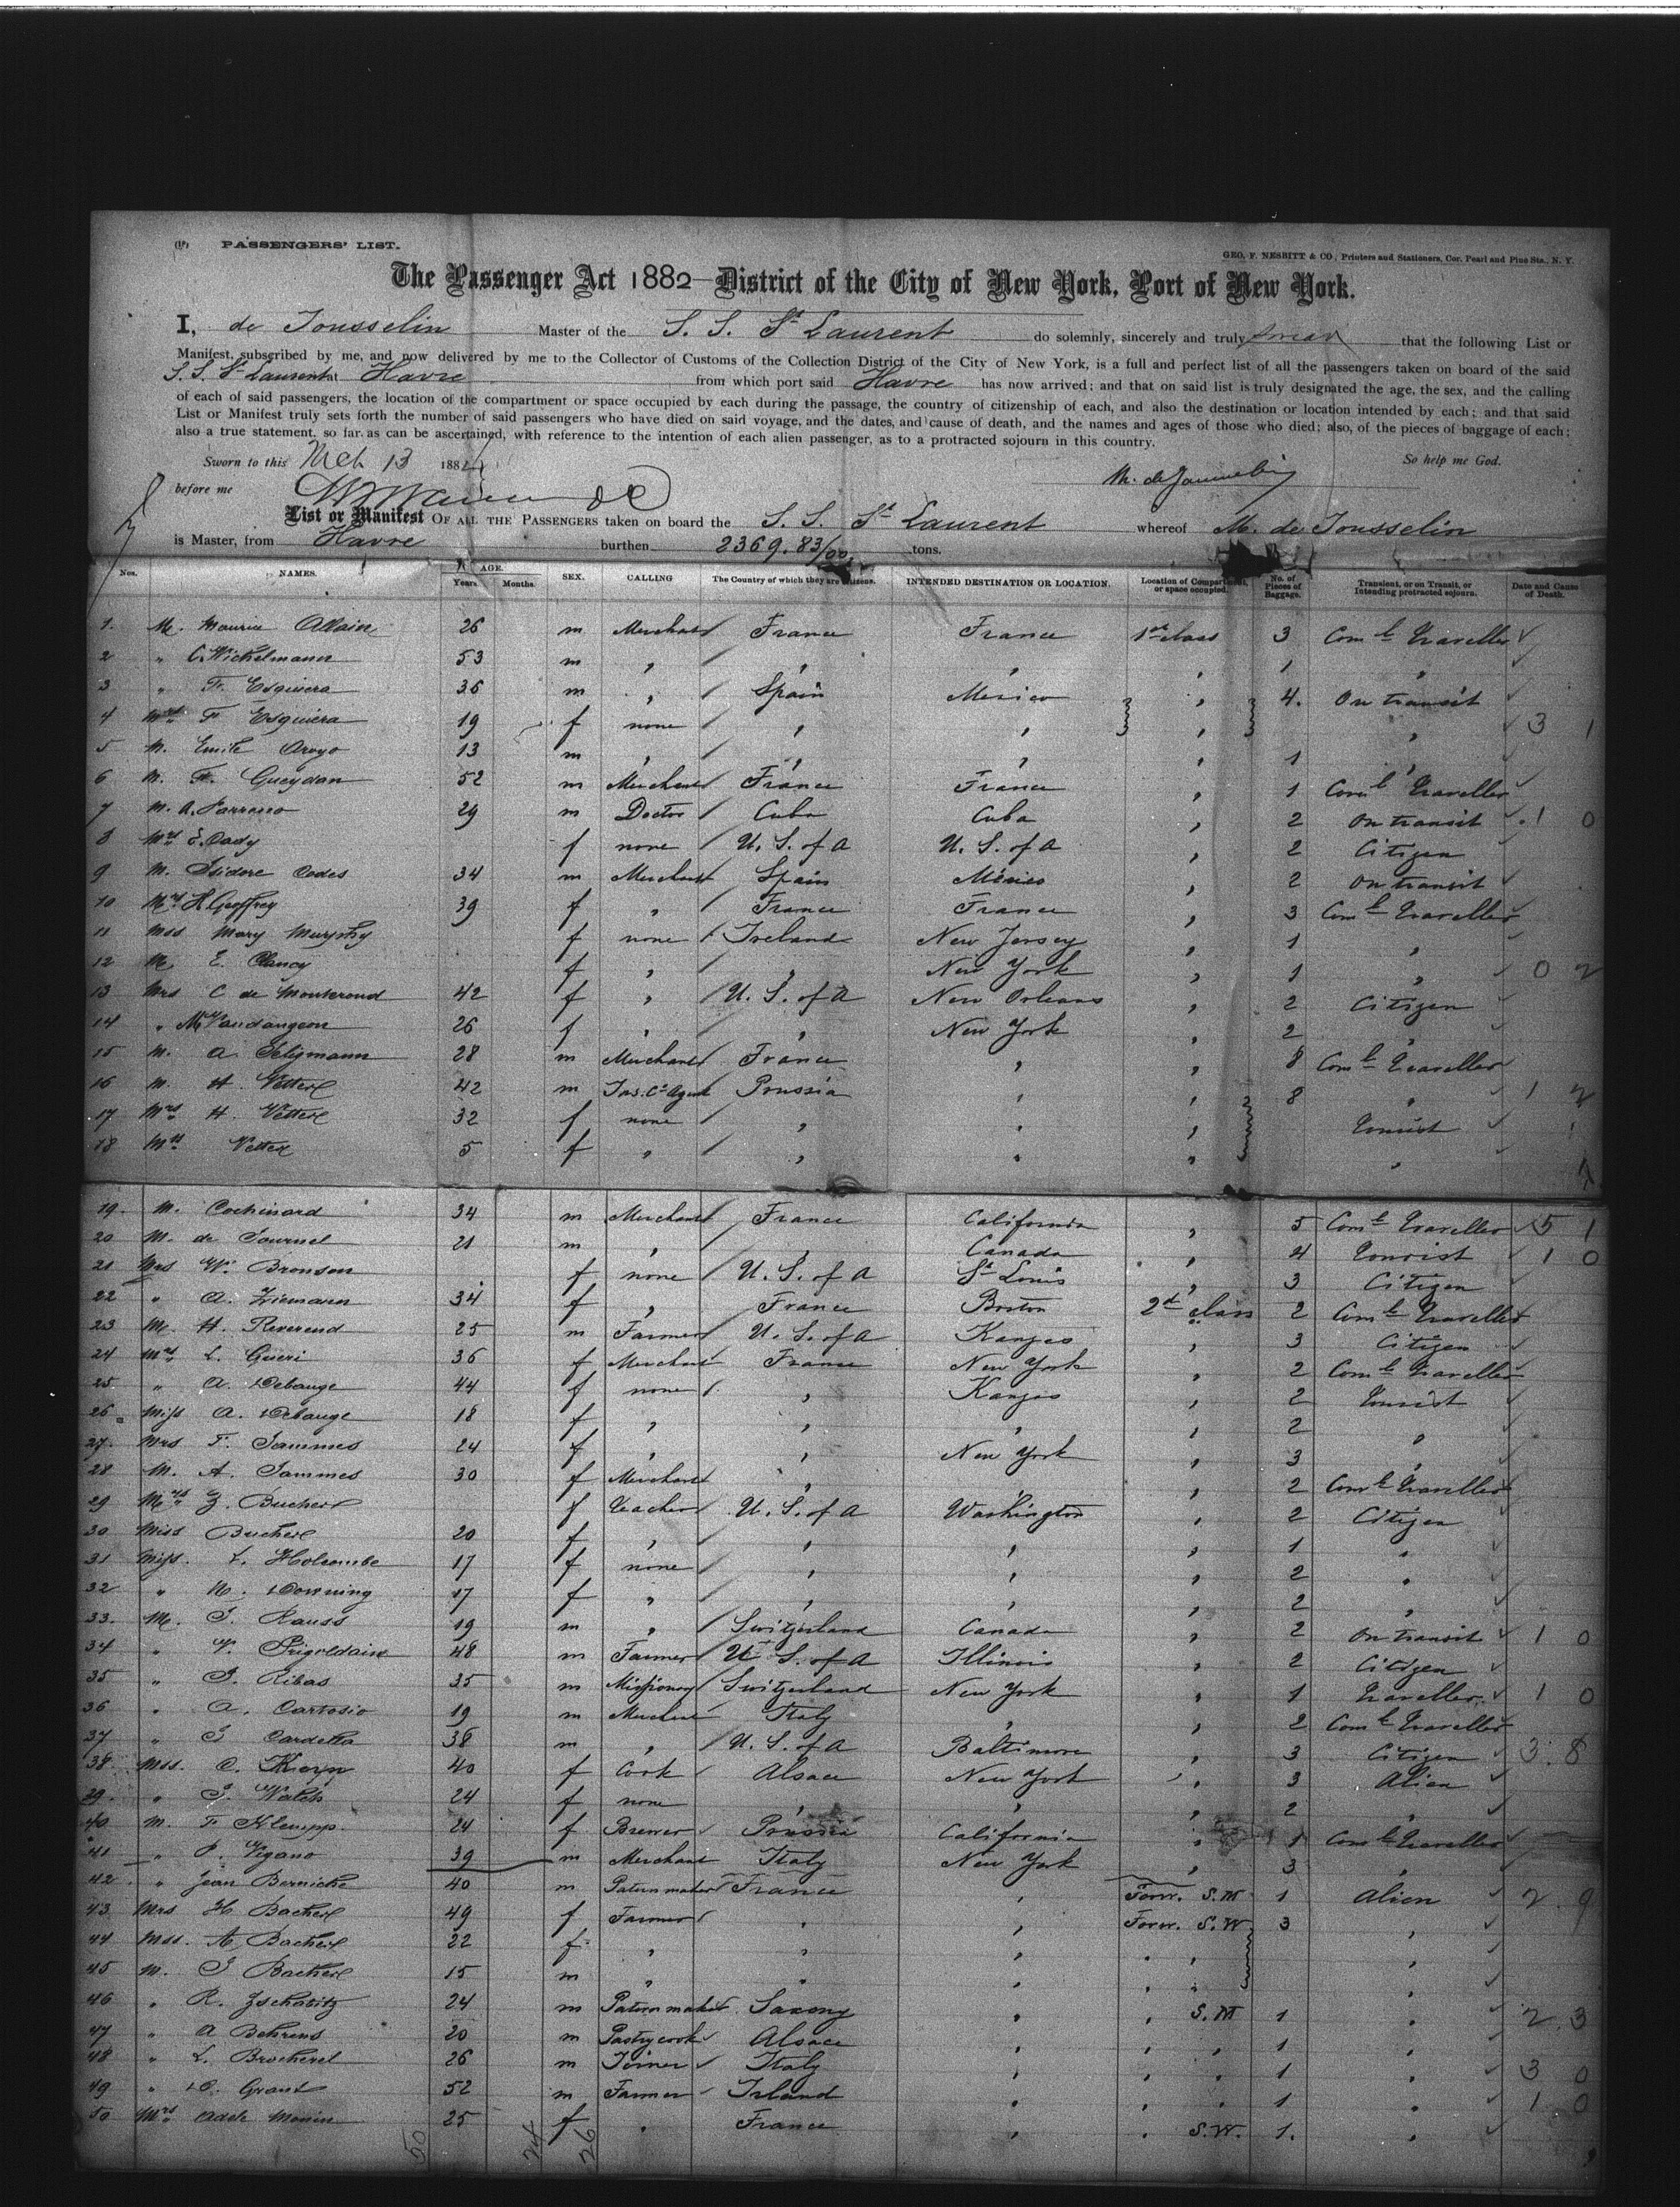 (19) PASSENGERS' LIST.
GEO. F. NESBITT & CO., Printers and Stationers, Cor. Pearl and Pine Sts., N. Y.
The Passenger Act 1882 — District of the City of New York, Port of New York.
I, de Jousselin Master of the S. S. St Laurent do solemnly, sincerely and truly swear that the following List or
Manifest, subscribed by me, and now delivered by me to the Collector of Customs of the Collection District of the City of New York, is a full and perfect list of all the passengers taken on board of the said
S. S. St Laurent at Havre from which port said Havre has now arrived; and that on said list is truly designated the age, the sex, and the calling
of each of said passengers, the location of the compartment or space occupied by each during the passage, the country of citizenship of each, and also the destination or location intended by each; and that said
List or Manifest truly sets forth the number of said passengers who have died on said voyage, and the dates, and cause of death, and the names and ages of those who died; also, of the pieces of baggage of each;
also a true statement, so far as can be ascertained, with reference to the intention of each alien passenger, as to a protracted sojourn in this country.
Sworn to this Mch 13 1884 So help me God.
before me
List or Manifest OF ALL THE PASSENGERS taken on board the S. S. St Laurent whereof M. de Jousselin
is Master, from Havre burthen 2369.83/00 tons.
Nos. NAMES. AGE. Years. Months. SEX. CALLING The Country of which they are citizens. INTENDED DESTINATION OR LOCATION. Location of Compartment, or space occupied. No. of Pieces of Baggage. Transient, or on Transit, or Intending protracted sojourn. Date and Cause of Death.
1. M. Maurice Allain 26 m Merchant France France 1st class 3 Coml Traveller
2 " C. Wichelmann 53 m " " " " 1 "
3 " F. Esquiera 36 m " Spain Mexico " 4. On transit
4 Mrs F Esquiera 19 f none " " " " 3 1
5 M. Emile Aroyo 13 m " " " " 1 "
6 M. Fr. Gueydan 52 m Merchant France France " 1 Coml Traveller
7 M. A. Parrano 29 m Doctor Cuba Cuba " 2 On transit 1 0
8 Mrs E. Cady f none U. S. of A U. S. of A " 2 Citizen
9 M. Isidore Codes 34 m Merchant Spain Mexico " 2 On transit
10 Mrs H. Geoffrey 39 f " France France " 3 Coml Traveller
11 Mss Mary Murphy f none Ireland New Jersey " 1 "
12 M. E. Clancy f " " New York " 1 " 0 2
13 Mrs C de Monterond 42 f " U. S. of A New Orleans " 2 Citizen
14 " M Vandangeon 26 f " " New York " 2 "
15 M. A. Seligmann 28 m Merchant France " " 8 Coml Traveller
16 M. H. Vetter 42 m Ins. Co Agent Prussia " " 8 " 1 2
17 Mrs H. Vetter 32 f none " " " Tourist
18 Mss Vetter 5 f " " " " "
19. M. Cochinard 34 m Merchant France California " 5 Coml Traveller 5 1
20 M. de Tournel 21 m " " Canada " 4 Tourist 1 0
21 Mrs W. Bronson f none U. S. of A St Louis " 3 Citizen
22 " A. Ziemann 34 f " France Boston 2d class 2 Coml Traveller
23 M. H. Reverend 25 m Farmer U. S. of A Kanzas " 3 Citizen
24 Mrs L. Gueri 36 f Merchant France New York " 2 Coml Traveller
25 " A. Debauge 44 f none " Kanzas " 2 Tourist
26 Miss A. Debauge 18 f " " " " 2 "
27. Mrs F. Jammes 24 f " " New York " 3 "
28 M. A. Jammes 30 f Merchant " " " 2 Coml Traveller
29 Mrs Z. Bucher f Teacher U. S. of A Washington " 2 Citizen
30 Miss Bucher 20 f " " " " 1 "
31 Miss. L. Holcombe 17 f none " " " 2 "
32 " N. Downing 17 f " " " " 2 "
33. M. J. Rauss 19 m " Switzerland Canada " 2 On transit 1 0
34 " V. Prigoldaire 48 m Farmer U. S. of A Illinois " 2 Citizen
35 " J. Ribas 35 m Missionary Switzerland New York " 1 Traveller 1 0
36 " A. Cartosio 19 m Merchant Italy " " 2 Coml Traveller
37 " J Cardetta 38 m " U. S. of A Baltimore " 3 Citizen 3 8
38. Mss. C. Kieryn 40 f Cook Alsace New York " 3 Alien
39. " J. Walch 24 f none " " " 2 "
40 M. F Klempp. 24 f Brewer Prussia California " 1 Coml Traveller
41 " P. Vigano 39 m Merchant Italy New York " 3 "
42 " Jean Bernicke 40 m Patern maker France " Forw. S. M 1 Alien 2 9
43 Mrs H Bacher 49 f Farmer " " Forw. S. W. 3 "
44 Mss. A. Bacher 22 f " " " " "
45 M. J Bacher 15 m " " " " "
46 " R. Zschabitz 24 m Patern maker Saxony " " S. M 1 " 2 3
47 " A Behrens 20 m Pastrycook Alsace " " " 1 "
48 " L. Brocherel 26 m Joiner Italy " " " 1 " 3 0
49 " D. Grant 52 m Farmer Irland " " " 1 " 1 0
50 Mrs Adèle Monin 25 f " France " S. W. 1. "
50 24 26